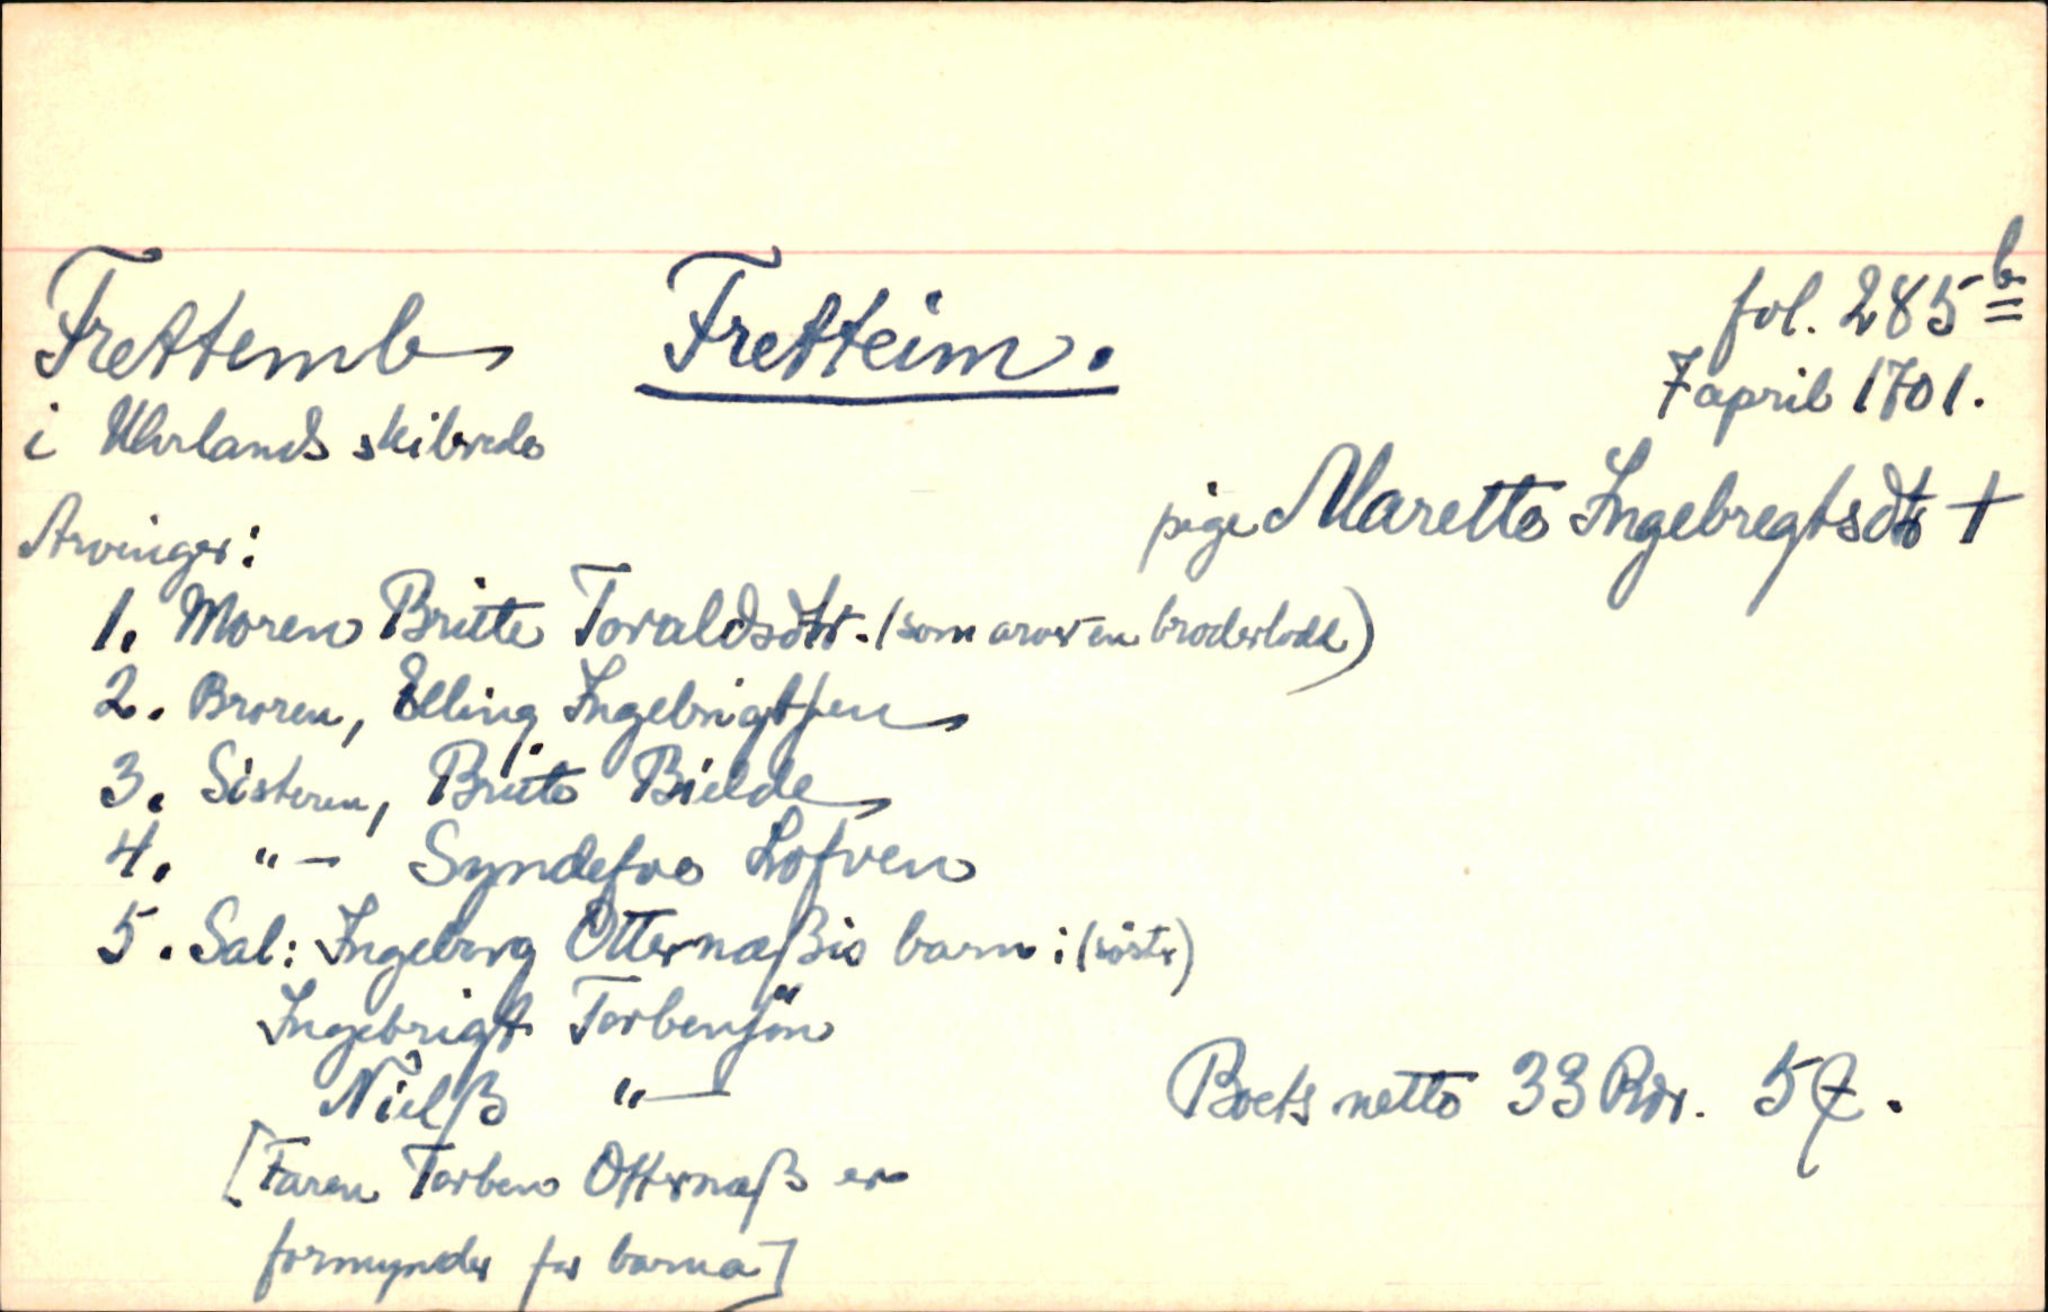 Frettemb Fretteim. fol. 285 b
7 april 1701.
i Uhrlands skibrede
pige Marette Ingebregtsdtr †
Arvinger:
1. Moren Britte Toraldsdtr. (som arver en broderlodd)
2. Broren, Elling Ingebrigtsen
3. Sisteren, Britte Bielde
4. "— Syndefve Lofven
5. Sal: Ingeborg Otternæßis barn: (söster)
Ingebrigt Torbensön
Nielß "—
Boets netto 33 Rdr. 5
[Faren Torben Otternæß er
formynder for barna]